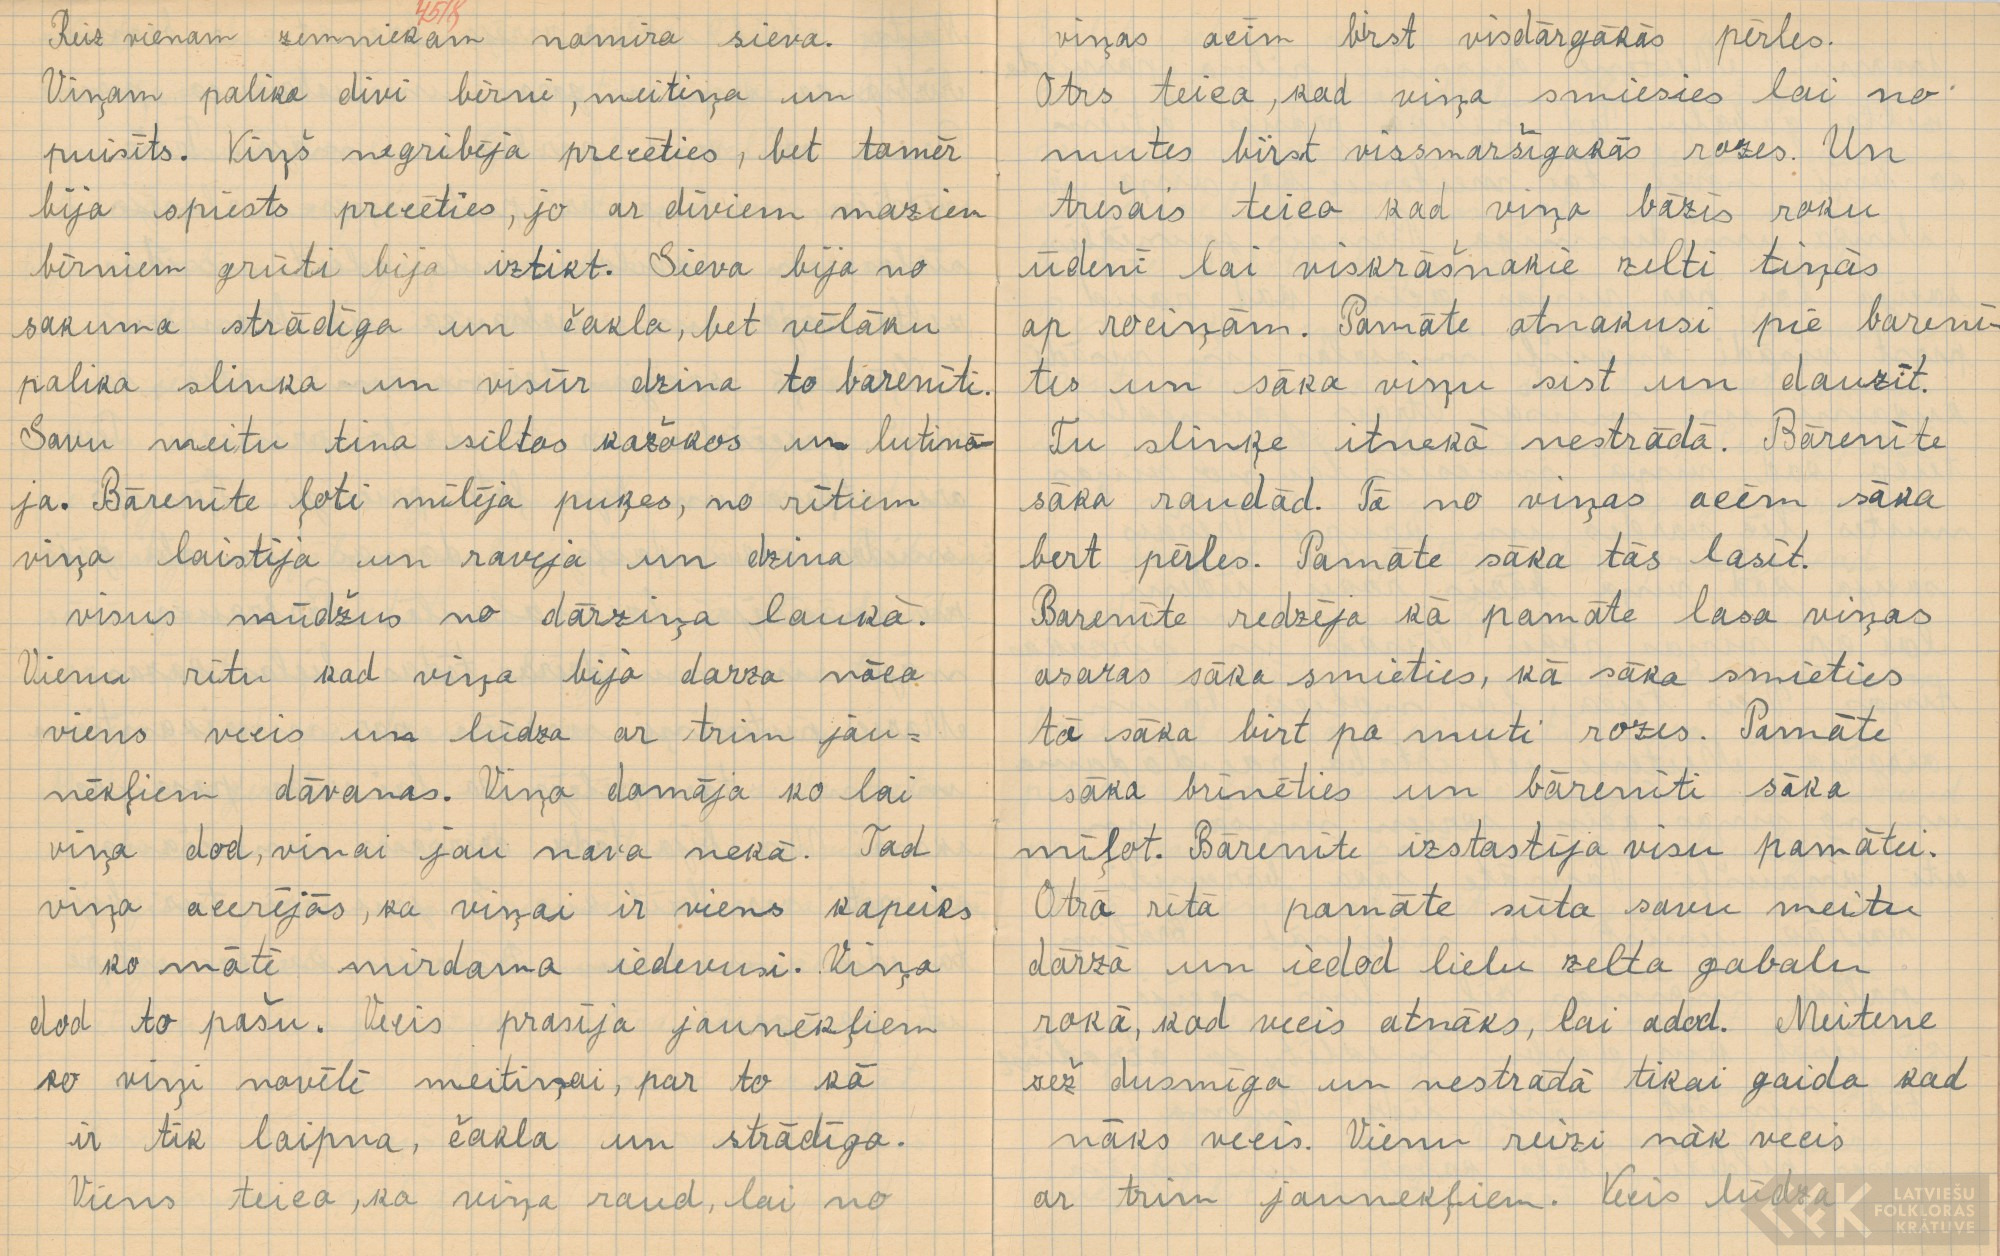 Reiz vienam zemniekam nomira sieva.
Viņam palika divi bērni, meitiņa un
puisīts. Viņš negribēja precēties, bet tomēr
bija spiests precēties, jo ar diviem maziem
bērniem grūti bija iztikt. Sieva bija no
sakuma strādīga un čakla, bet vēlāku
palika slinka un visūr dzina to bārenīti.
Savu meitu tina siltos kažokos un lutinā-
ja. Bārenīte ļoti mīlēja puķes, no rītiem
viņa laistija un ravēja un dzina
visus mūdžus no dārziņa laukā.
Vienu rītu kad viņa bija darza nāca
viens vecis un lūdza ar trim jau=
nēkļiem dāvanas. Viņa domāja ko lai
viņa dod, vinai jau nava nekā. Tad
viņa acerējās, ka viņai ir viens kapeiks
ko mātē mirdama iedevusi. Viņa
dod to pašu. Vecis prasīja jaunēkļiem
ko viņi novēlē meitiņai, par to kā
ir tik laipna, čakla un strādīga.
Viens teica, ka viņa raud, lai no
viņas acīm birst visdārgākās pērles.
Otrs teica, kad viņa smiesies lai no
mutes birst vissmaršīgakās rozes. Un
trešais teica kad viņa bāzīs roku
ūdenī lai viskrāšnakie zelti tiņās
ap rociņām. Pamāte atnakusi pie bareni-
tes un sāka viņu sist un dauzīt.
Tu slinķe itnekā nestrādā. Bārenīte
sāka raudād. Tā no viņas acēm sāka
bert pērles. Pamāte sāka tās lasīt.
Barenīte redzēja kā pamāte lasa viņas
asaras sāka smieties, kā sāka smieties
tā sāka birt pa muti rozes. Pamāte
sāka brīnēties un bārenīti sāka
mīļot. Bārenīte izstastīja visu pamātei.
Otrā rītā pamāte sūta savu meitu
dārzā un iedod lielu zelta gabalu
rokā, kad vecis atnāks, lai adod. Meitene
sež dusmīga un nestrādā tikai gaida kad
nāks vecis. Vienu reizi nāk vecis
ar trim jaunekļiem. Vecis lūdza
LATVIEŠU
FOLKLORAS
KRĀTUVE